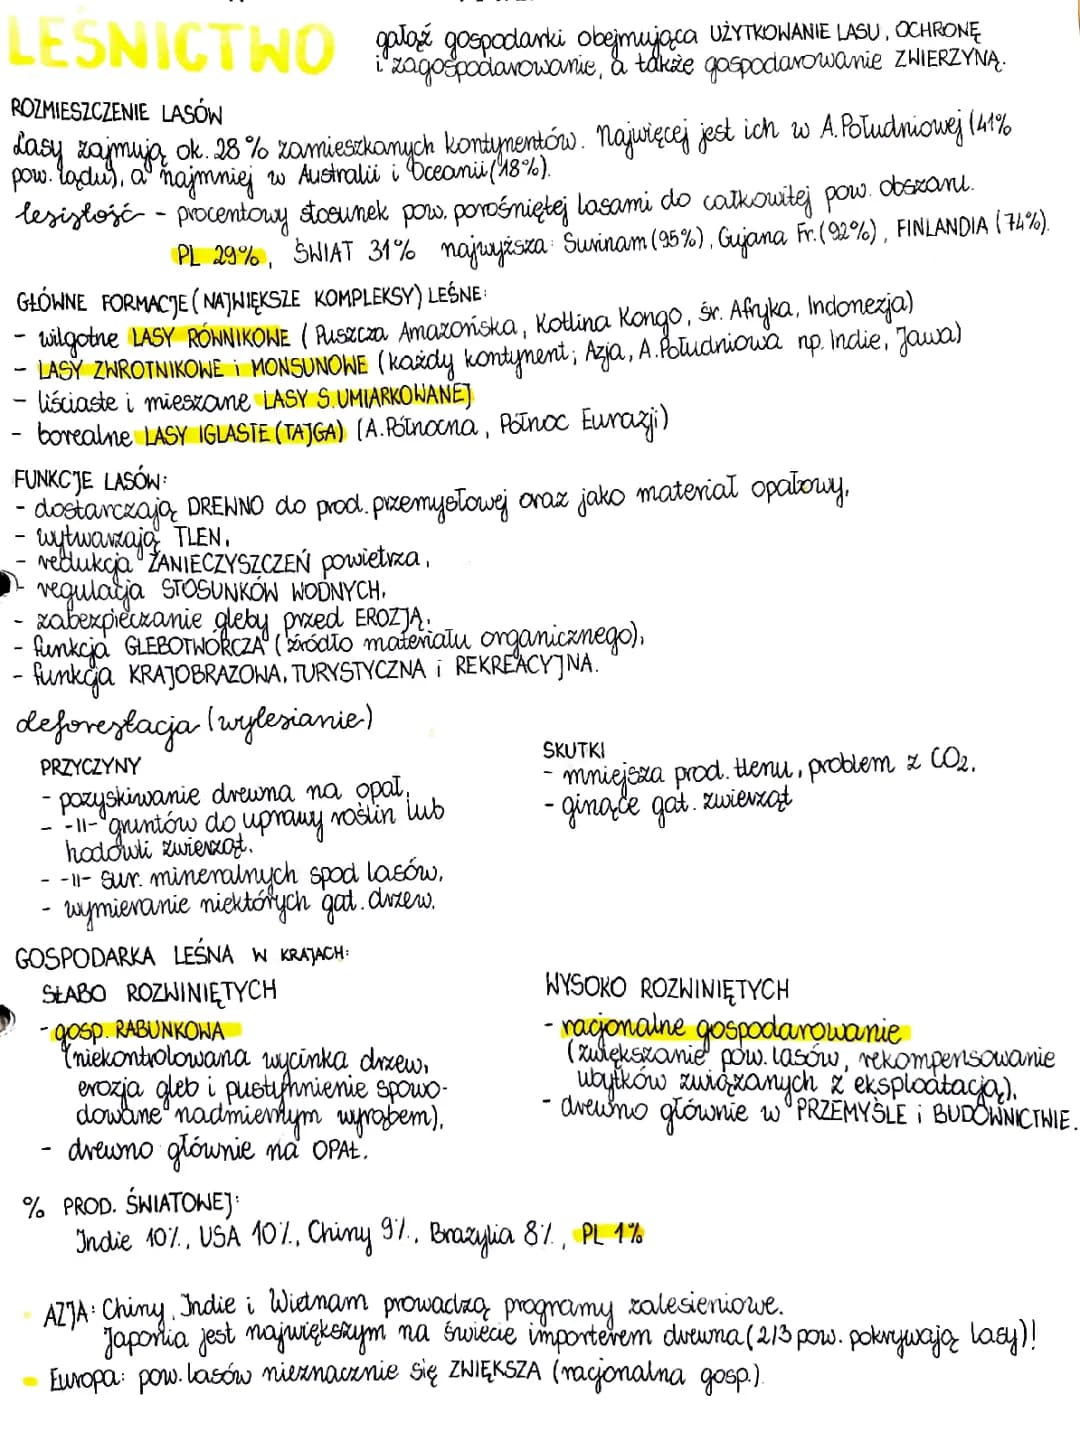 LEŚNICTWO
gałąź gospodarki obejmująca UŻYTKOWANIE LASU, OCHRONĘ
i zagospodarowanie, a także gospodarowanie ZWIERZYNĄ.
ROZMIESZCZENIE LASÓW
Lasy zajmują ok. 28% zamieszkanych kontynentów. Najwięcej jest ich w A.Południowej (41%
pow. lądu), a najmniej w Australii i Oceanii (18%).
lesistość - procentowy stosunek pow. porośniętej lasami do całkowitej pow. obszaru.
PL 29%, ŚWIAT 31% najwyższa: Surinam (95%), Gujana Fr. (92%), FINLANDIA (74%).
GŁÓWNE FORMACJE (NAJWIĘKSZE KOMPLEKSY) LEŚNE:
- wilgotne LASY RÓWNIKOWE (Puszcza Amazońska, Kotlina Kongo, śr. Afryka, Indonezja)
- LASY ZWROTNIKOWE i MONSUNOWE (każdy kontynent; Azja, A.Południowa np. Indie, Jawa)
- liściaste i mieszane LASY S.UMIARKOWANEJ
- borealne LASY IGLASTE (TAJGA) (A.Północna, Północ Eurazji)
FUNKCJE LASÓW:
- dostarczają DREWNO do prod. przemysłowej oraz jako materiał opałowy,
- wytwarzają TLEN,
- redukcja ZANIECZYSZCZEŃ powietrza,
- regulacja STOSUNKÓW WODNYCH,
- zabezpieczanie gleby przed EROZJĄ,
- funkcja GLEBOTWÓRCZA (źródło materiału organicznego),
- funkcja KRAJOBRAZOWA, TURYSTYCZNA i REKREACYJNA.
deforestacja (wylesianie)
PRZYCZYNY
- pozyskiwanie drewna na opał,
- -||- gruntów do uprawy roślin lub
hodowli zwierząt,
- -||- sur. mineralnych spod lasów,
- wymieranie niektórych gat. drzew.
SKUTKI
- mniejsza prod. tlenu, problem z CO2,
- ginące gat. zwierząt
GOSPODARKA LEŚNA W KRAJACH:
SŁABO ROZWINIĘTYCH
- gosp. RABUNKOWA
(niekontrolowana wycinka drzew,
erozja gleb i pustynnienie spowo-
dowane nadmiernym wyrębem),
- drewno głównie na OPAŁ.
WYSOKO ROZWINIĘTYCH
- racjonalne gospodarowanie
(zwiększanie pow. lasów, rekompensowanie
ubytków związanych z eksploatacją),
- drewno głównie w PRZEMYŚLE i BUDOWNICTWIE.
% PROD. ŚWIATOWEJ:
Indie 10%, USA 10%, Chiny 9%, Brazylia 8%, PL 1%
AZJA: Chiny, Indie i Wietnam prowadzą programy zalesieniowe.
Japonia jest największym na świecie importerem drewna (2/3 pow. pokrywają lasy)!
Europa: pow. lasów nieznacznie się ZWIĘKSZA (racjonalna gosp.)